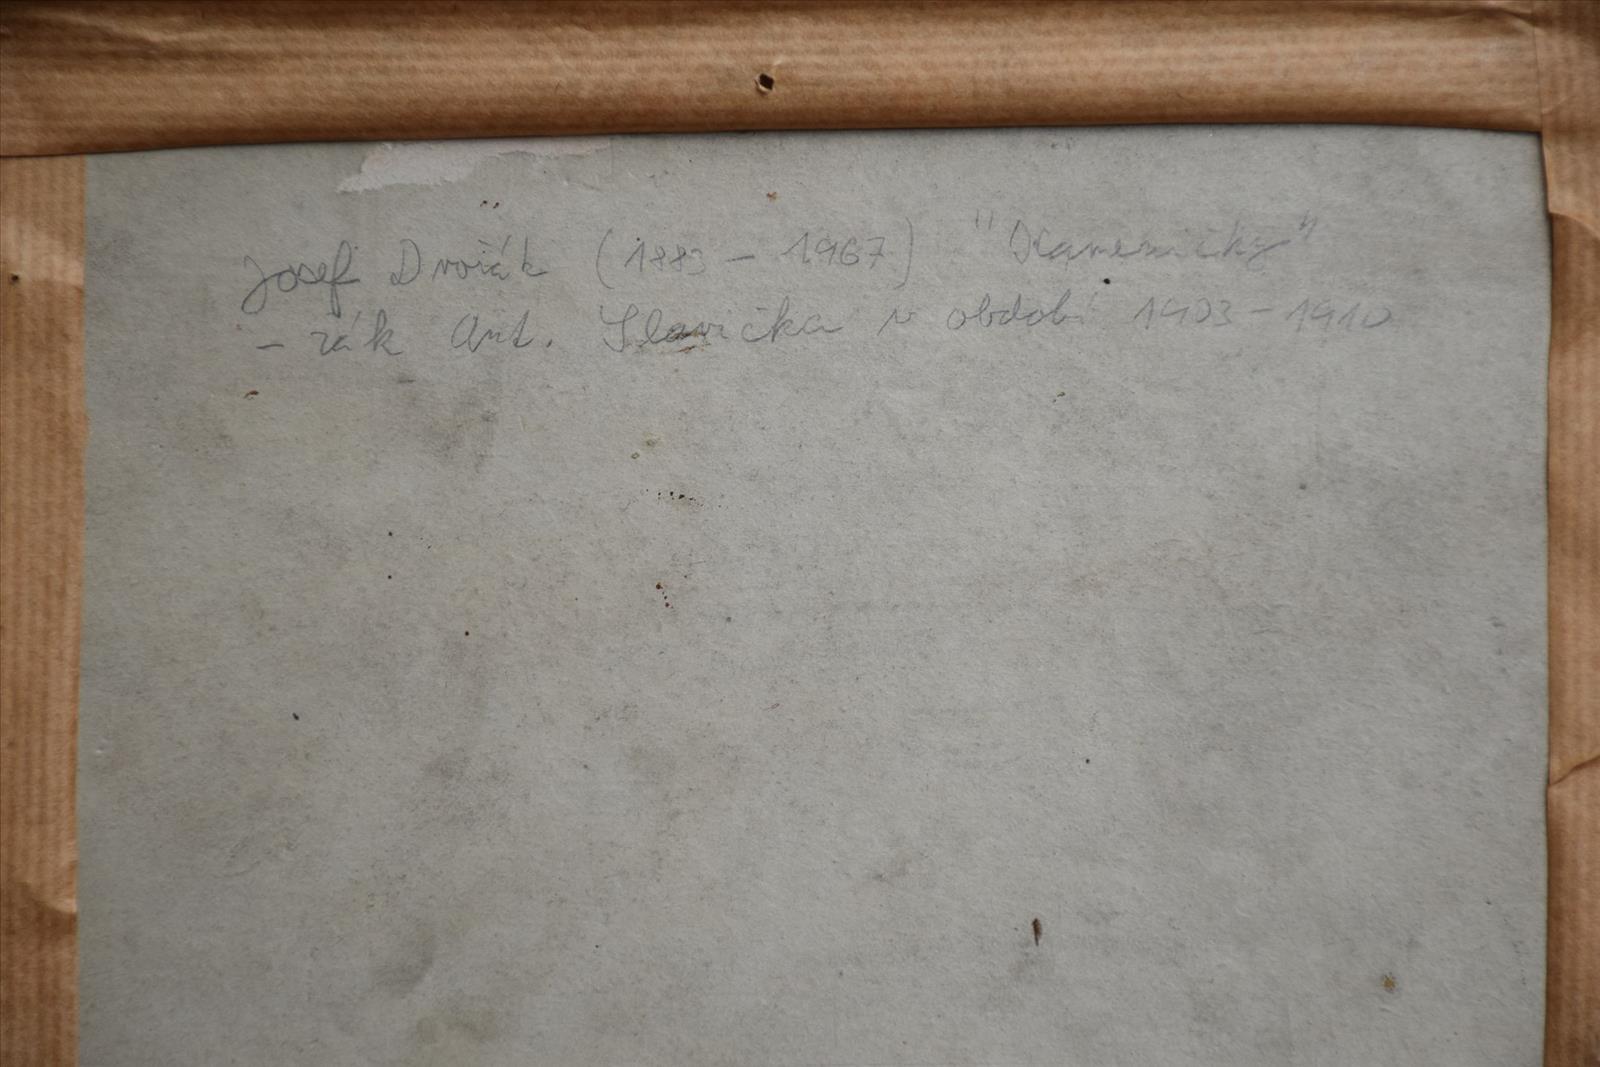 Josef Dvořák (1883 - 1967) "Kameničky"
- žák Ant. Slavíčka v období 1903 - 1910